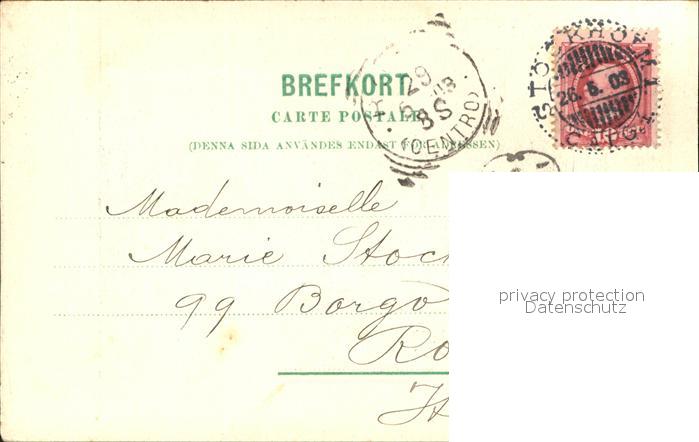 BREFKORT
CARTE POSTALE
(DENNA SIDA ANVÄNDES ENDAST FÖR ADRESSEN)
29
8 S
(CENTRO)
STOCKHOLM 1
26. 6. 03
Mademoiselle
Marie Stoc
99 Borgo
Ro
privacy protection
Datenschutz